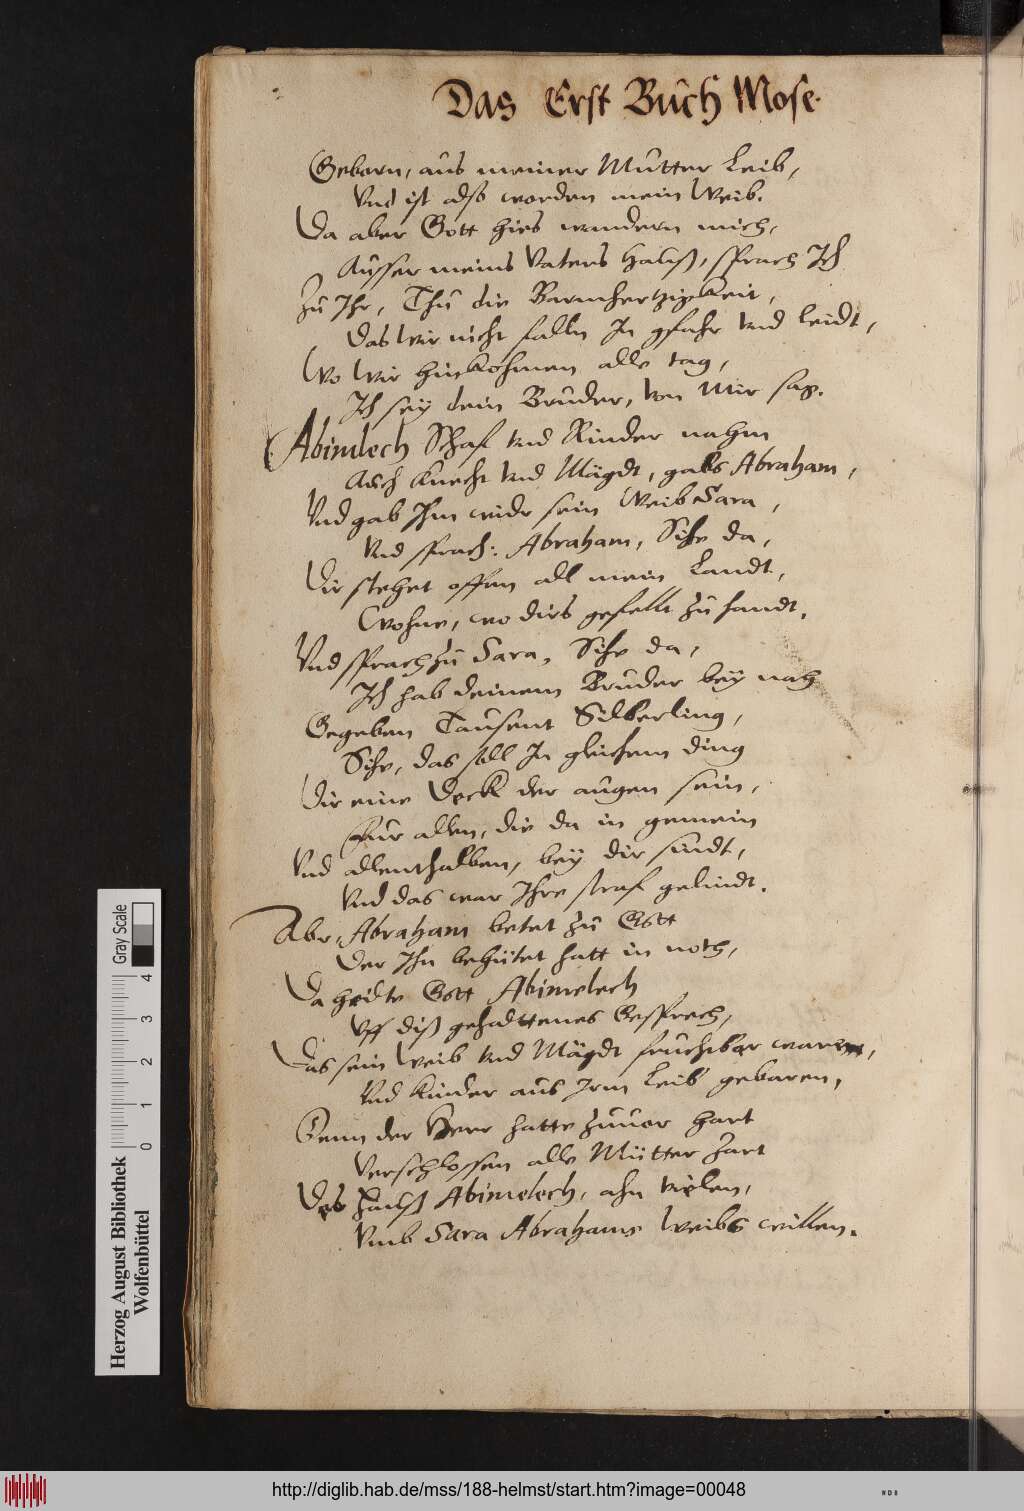 Das Erst Buch Mose.
Geborn, aus meiner Mutter Leib,
Vnd ist also worden mein Weib.
Da aber Gott hies wandern mich,
Ausser meins Vaters Hauß, sprach Ich
Zu Ihr, Thu die Barmhertzigkeit,
Das Wir nicht falln In gfahr vnd leidt,
Wo Wir hinkohmen alle tag,
Ich sey dein Bruder, von Mir sag.
Abimlech Schaf vnd Rinder nahm
Auch Knecht vnd Mägdt, gabs Abraham,
Vnd gab Ihm widr sein Weib Sara,
Vnd sprach: Abraham, Sihe da,
Dir stehet offen all mein Landt,
Wohne, wo dirs gefellt zu handt.
Vnd sprach zu Sara, Sihe da,
Ich hab deinem Bruder bey nah
Gegeben Tausent Silberling,
Sihe, das soll In gleichem ding
Dir eine Deck der augen sein,
Fur allen, die da in gemein
Vnd allenthalben, bey dir sindt,
Vnd das war Ihre straf gelindt.
Abr, Abraham betet zu Gott
Der Ihn behütet hatt in noth,
Da heilte Gott Abimelech
Vff diß gehaltenes Gesprech,
Das sein Weib vnd Mägdt fruchtbar waren,
Vnd Kinder aus Irm Leib gebaren,
Denn der Herr hatte zuuor hart
Verschlossen alle Mütter zart
Des Hauß Abimelech, ahn vielen,
Vmb Sara Abrahams Weibs willen.
Gray Scale
4
3
2
1
0
Herzog August Bibliothek
Wolfenbüttel
http://diglib.hab.de/mss/188-helmst/start.htm?image=00048